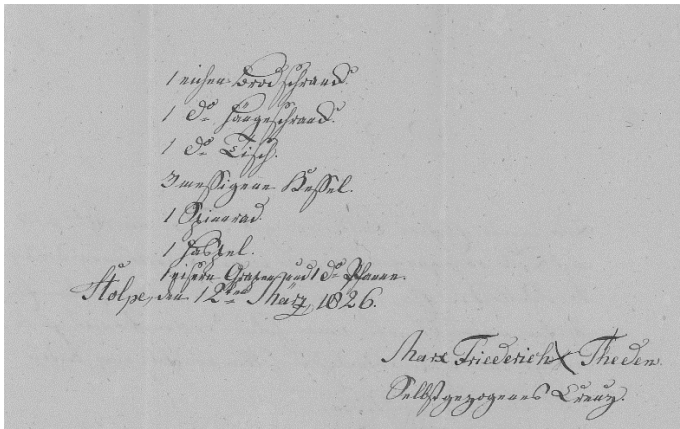 1 eichen Brodschranck.
1 do Hängeschranck.
1 do Tisch.
3 messigene Kessel.
1 Spinnrad.
1 Haspel.
1 eisern Grapen und 1 do Pfanne.
Stolpe, den 12ten März, 1826.
Marx Friederich X Theden.
Selbstgezogenes Creutz.